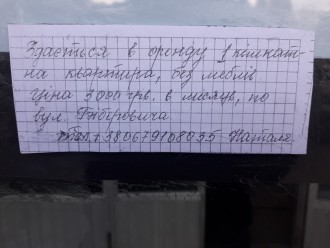 Здається в оренду 1 кімнат-
на квартира, без меблів
ціна 3000 грв. в місяць, по
вул.
тел. +380679108035 Наталя.